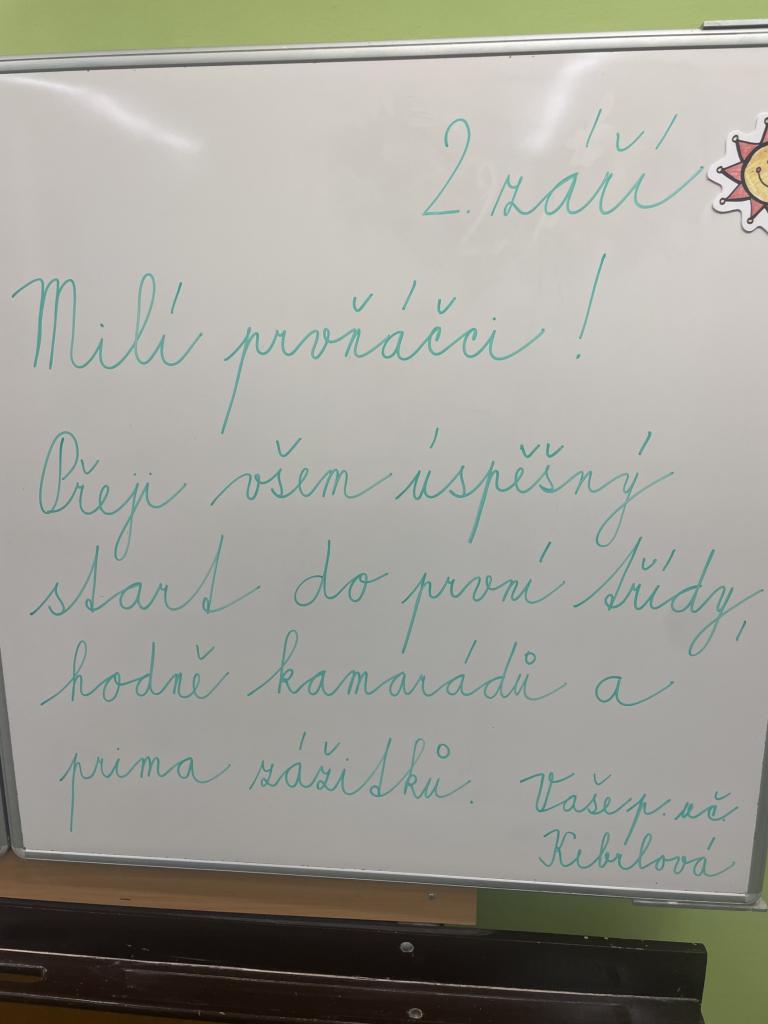 2. září
Milí prvňáčci!
Přeji všem úspěšný
start do první třídy,
hodně kamarádů a
prima zážitků. Vaše p. uč.
Kubrlová